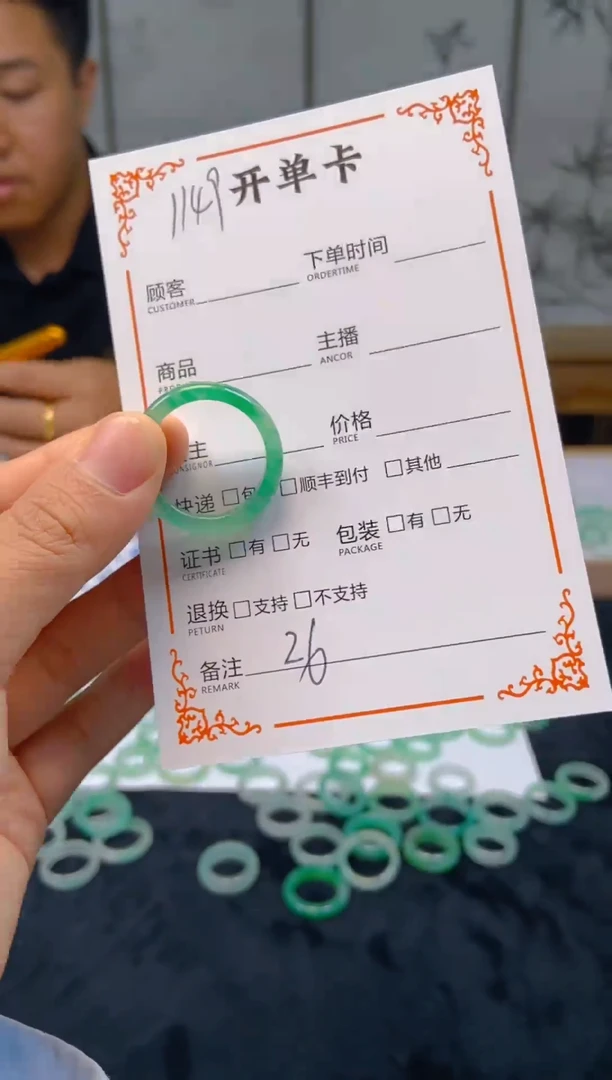 1149 开单卡
顾客 下单时间
CUSTOMER ORDERTIME
商品 主播
ANCOR
主 价格
CONSIGNOR PRICE
快递 □包 □顺丰到付 □其他
证书 □有 □无 包装 □有 □无
CERTIFICATE PACKAGE
退换 □支持 □不支持
PETURN
备注 26
REMARK